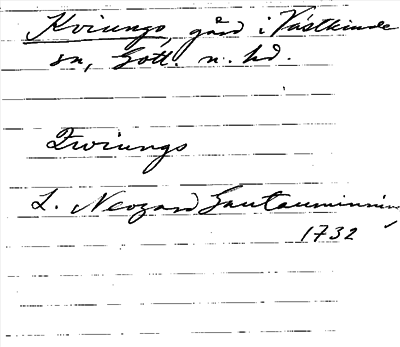 Kviungs, gård i Västkinde
sn, Gotl. n. hd.
Qwiungs
L. Neogard Gautauminning,
1732